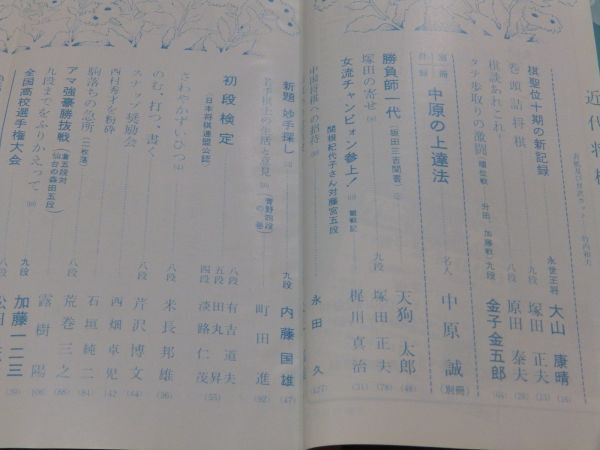 近代将棋
棋聖位十期の新記録 永世王将 大山康晴 (16)
巻頭詰将棋 九段 塚田正夫 (23)
棋談あれこれ 八段 原田泰夫 (28)
タテ歩取りの激闘 九段 金子金五郎 (64)
別冊付録 中原の上達法 名人 中原誠 (別冊)
勝負師一代 (坂田三吉聞書) 天狗太郎 (48)
塚田の寄せ 九段 塚田正夫 (78)
女流チャンピオン参上! 観戦記 梶川真治 (31)
関根紀代子さん対藤宮五段
中国将棋への招待 永田久 (127)
新題 妙手探し 九段 内藤国雄 (47)
若手棋士の生活と意見 (青野四段の巻) 町田進 (92)
初段検定 (日本将棋連盟公認) 八段 有吉道夫
五段 田丸昇
四段 淡路仁茂 (55)
さわやかずいひつ 八段 米長邦雄 (36)
のむ、打つ、書く 八段 芹沢博文 (44)
スナップ奨励会 西畑卓児 (42)
西村秀才を粉砕 石垣純二 (84)
駒落ちの急所 (二枚落) 八段 荒巻三之 (88)
アマ強豪勝抜戦 (倉五段対仙台の森田五段) 露樹陽 (106)
九段までをふりかえって 九段 加藤一二三 (39)
全国高校選手権大会